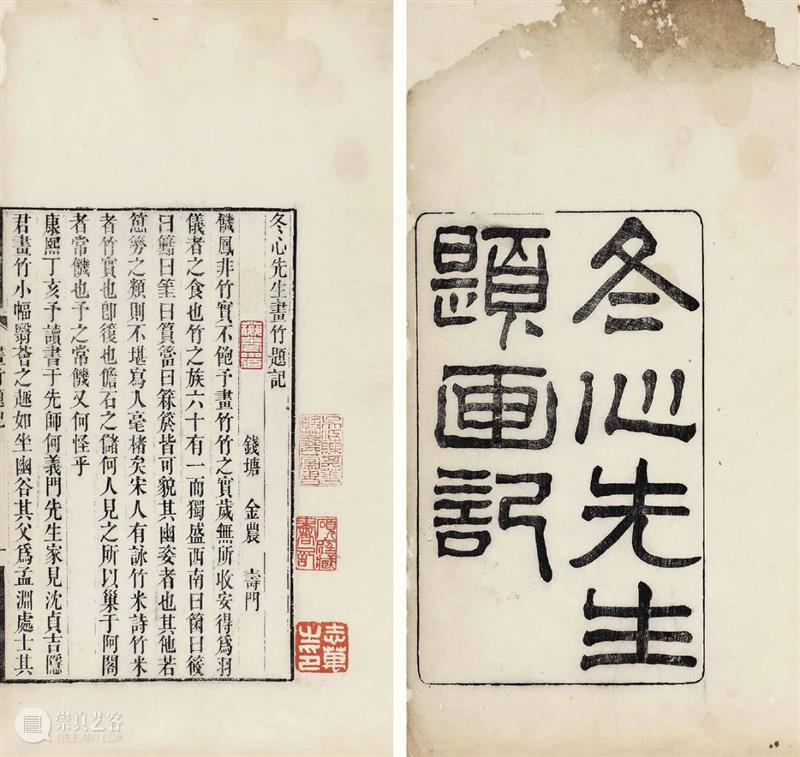 冬心先生
題畫記
冬心先生畫竹題記
錢塘 金農 壽門
饑鳳非竹實不飽予畫竹竹之實歲無所收安得爲羽
儀者之食也竹之族六十有一而獨盛西南曰箘曰
曰曰筀曰篔簹曰箖箊皆可貌其幽姿者也其他若
之類則不堪寫入毫楮矣宋人有詠竹米詩竹米
者竹實也卽也儋石之儲何人見之所以巢于阿閣
者常饑也予之常饑又何怪乎
康熙丁亥予讀書于先師何義門先生家見沈貞吉隱
君畫竹小幅翳薈之趣如坐幽谷其父爲孟淵處士其
崇真艺客
TRUEART.COM